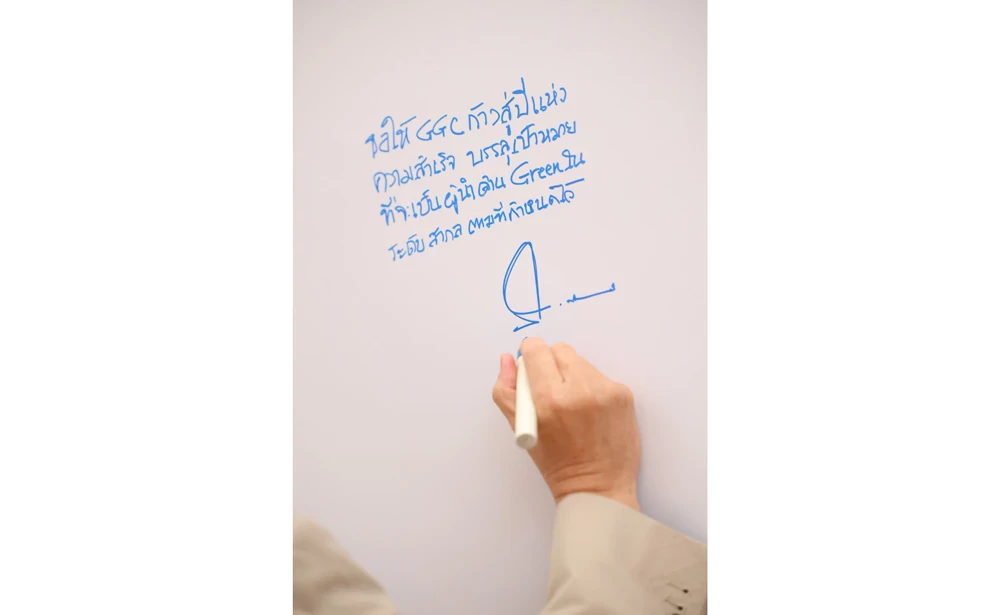 ขอให้ GGC ก้าวสู่ปีแห่ง
ความสำเร็จ บรรลุเป้าหมาย
ที่จะเป็นผู้นำด้าน Green ใน
ระดับสากล ตามที่กำหนดไว้